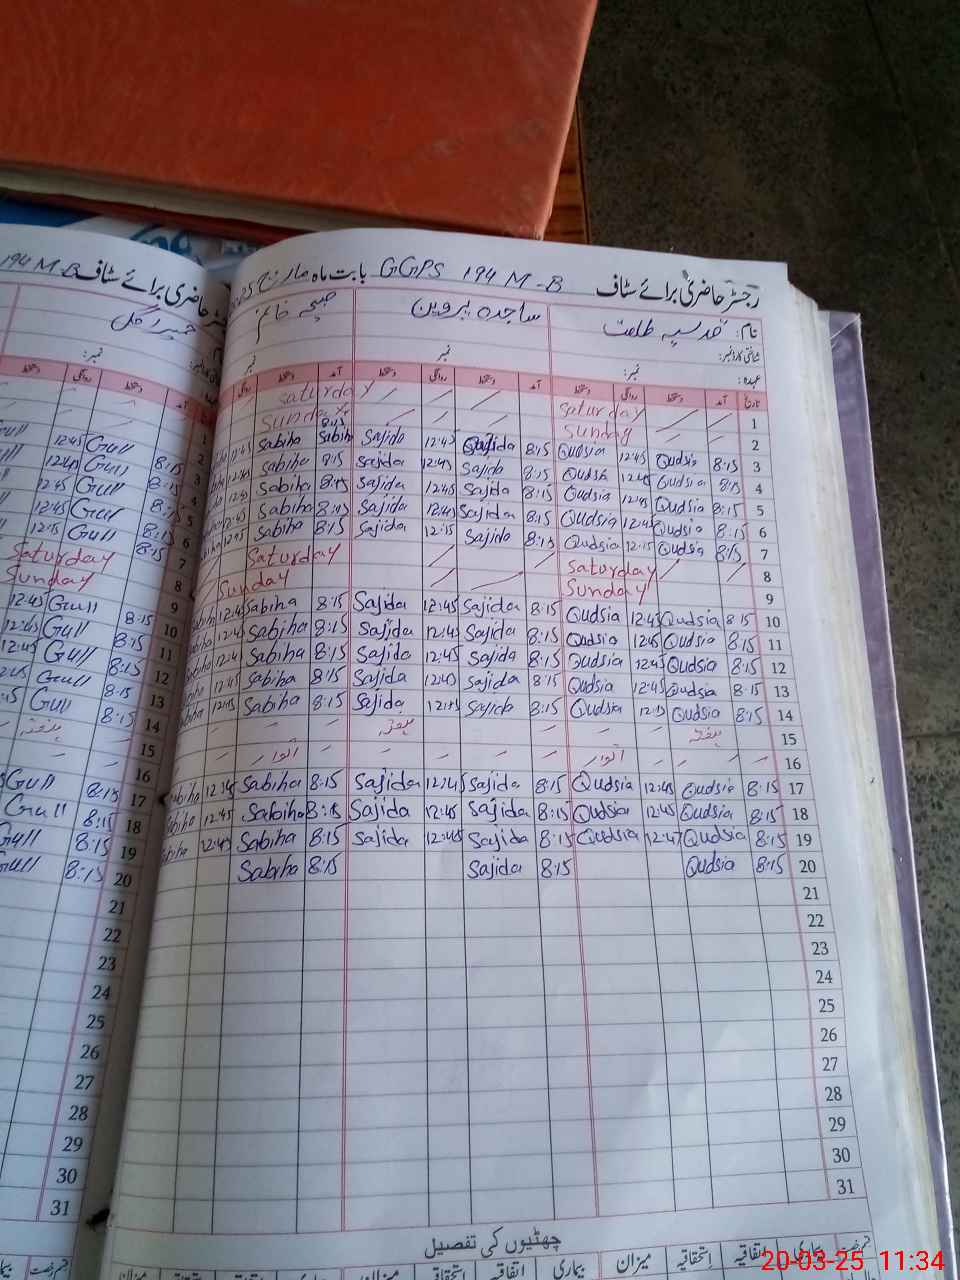 رجسٹر حاضری برائے سٹاف GGPS 194 M-B بابت ماہ مارچ
نام: قدسیہ طلعت ساجدہ پروین صبیحہ خانم
شناختی کارڈ نمبر:
عہدہ: نمبر: نمبر نمبر
تاریخ آمد دستخط روانگی دستخط آمد دستخط روانگی دستخط آمد دستخط روانگی
1 Saturday Saturday
2 Sunday Sunday
3 8:15 Qudsia 12:45 Qudsia 8:15 Sajida 12:45 Sajida 8:15 Sabiha Sabiha 12:45
4 8:15 Qudsia 12:45 Qudsia 8:15 Sajida 12:45 Sajida 8:15 Sabiha
5 8:15 Qudsia 12:45 Qudsia 8:15 Sajida 12:45 Sajida 8:15 Sabiha
6 8:15 Qudsia 12:45 Qudsia 8:15 Sajida 12:45 Sajida 8:15 Sabiha 12:45
7 8:15 Qudsia 12:15 Qudsia 8:15 Sajida 12:15 Sajida 8:15 Sabiha 12:15
8 Saturday Saturday
9 Sunday Sunday
10 8:15 Qudsia 12:45 Qudsia 8:15 Sajida 12:45 Sajida 8:15 Sabiha 12:45
11 8:15 Qudsia 12:45 Qudsia 8:15 Sajida 12:45 Sajida 8:15 Sabiha 12:45
12 8:15 Qudsia 12:45 Qudsia 8:15 Sajida 12:45 Sajida 8:15 Sabiha 12:45
13 8:15 Qudsia 12:45 Qudsia 8:15 Sajida 12:45 Sajida 8:15 Sabiha 12:45
14 8:15 Qudsia 12:15 Qudsia 8:15 Sajida 12:15 Sajida 8:15 Sabiha 12:15
15 ہفتہ ہفتہ
16 اتوار اتوار
17 8:15 Qudsia 12:45 Qudsia 8:15 Sajida 12:45 Sajida 8:15 Sabiha 12:45
18 8:15 Qudsia 12:45 Qudsia 8:15 Sajida 12:45 Sajida 8:15 Sabiha 12:45
19 8:15 Qudsia 12:47 Qudsia 8:15 Sajida 12:45 Sajida 8:15 Sabiha 12:45
20 8:15 Qudsia 8:15 Sajida 8:15 Sabiha
21
22
23
24
25
26
27
28
29
30
31
چھٹیوں کی تفصیل
قسم رخصت بیماری اتفاقیہ استحقاقیہ میزان بیماری اتفاقیہ استحقاقیہ میزان
حاضری برائے سٹاف 194 M-B
حمیرا گل
نمبر:
آمد دستخط روانگی دستخط
1
2
3 8:15 Gull 12:45
4 8:15 Gull 12:45
5 8:15 Gull 12:45
6 8:15 Gull 12:45
7 8:15 Gull 12:15
8 Saturday
9 Sunday
10 8:15 Gull 12:45
11 8:15 Gull 12:45
12 8:15 Gull 12:45
13 8:15 Gull 12:45
14 8:15 Gull
15 ہفتہ
16
17 8:15 Gull
18 8:15 Gull
19 8:15 Gull
20 8:15 Gull
21
22
23
24
25
26
27
28
29
30
31
قسم رخصت
20-03-25 11:34